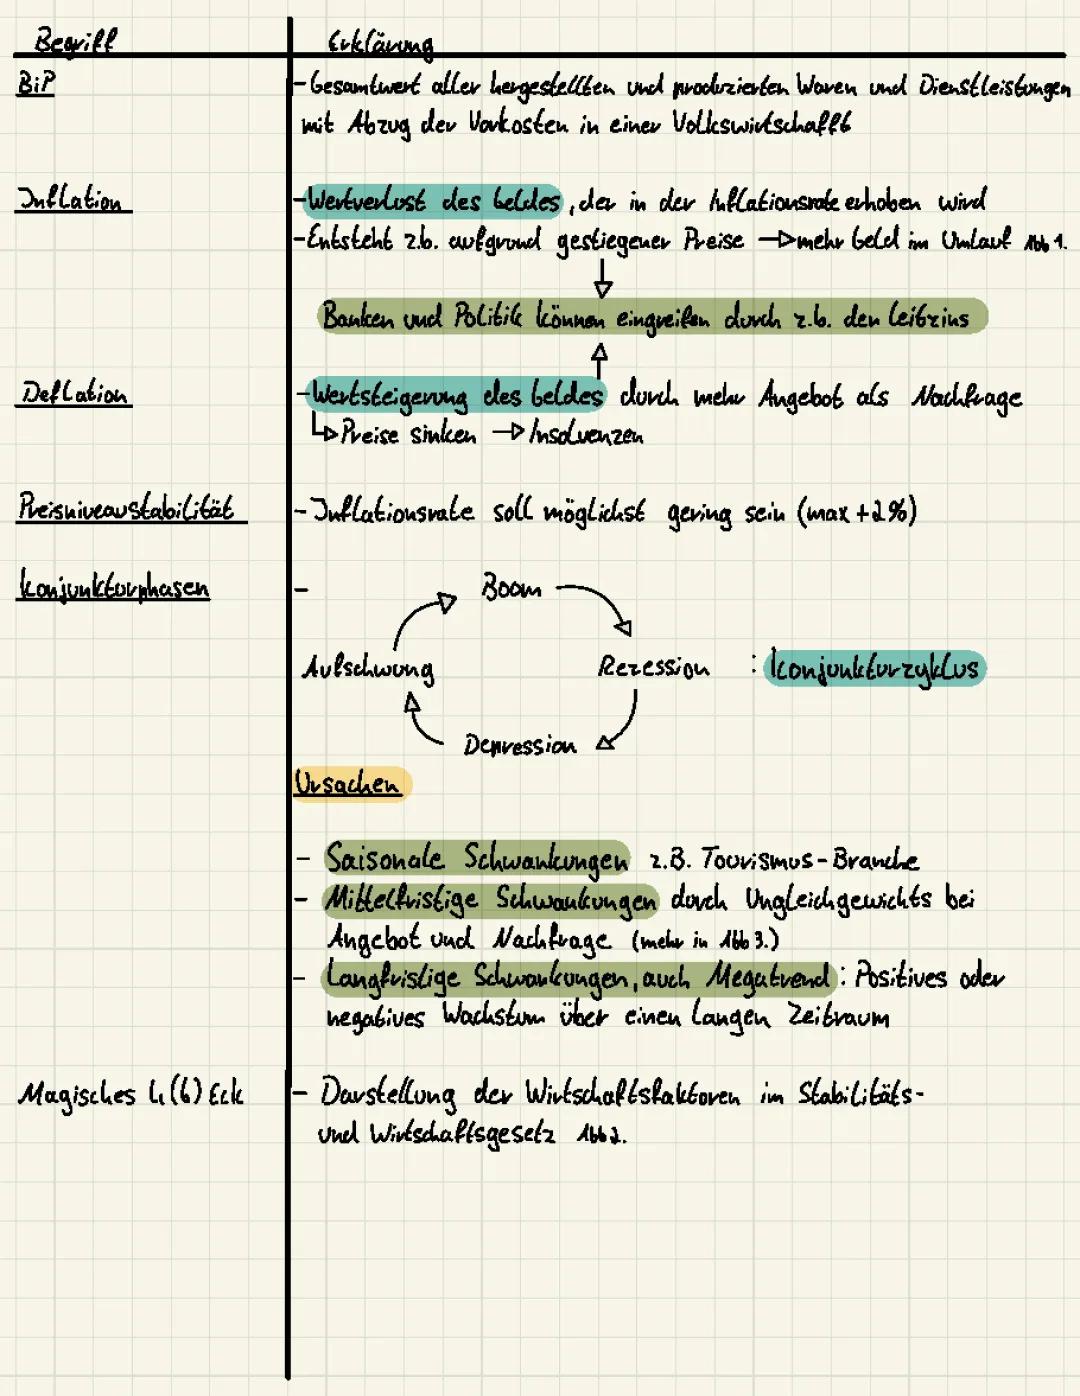 Begriff Erklärung
BiP -Gesamtwert aller hergestellten und produzierten Waren und Dienstleistungen
mit Abzug der Vorkosten in einer Volkswirtschafft
Inflation -Wertverlust des Geldes, der in der Inflationsrate erhoben wird
-Entsteht z.b. aufgrund gestiegener Preise → mehr Geld im Umlauf Abb 1.
Banken und Politik können eingreifen durch z.b. den Leitzins
Deflation -Wertsteigerung des Geldes durch mehr Angebot als Nachfrage
↳ Preise sinken → Insolvenzen
Preisniveaustabilität -Inflationsrate soll möglichst gering sein (max +2%)
Konjunkturphasen - Boom
Aufschwung Rezession : Konjunkturzyklus
Depression
Ursachen
- Saisonale Schwankungen z.B. Tourismus-Branche
- Mittelfristige Schwankungen durch Ungleichgewichts bei
Angebot und Nachfrage (mehr in Abb 3.)
- Langfristige Schwankungen, auch Megatrend: Positives oder
negatives Wachstum über einen langen Zeitraum
Magisches 4 (6) Eck - Darstellung der Wirtschaftsfaktoren im Stabilitäts-
und Wirtschaftsgesetz Abb 2.